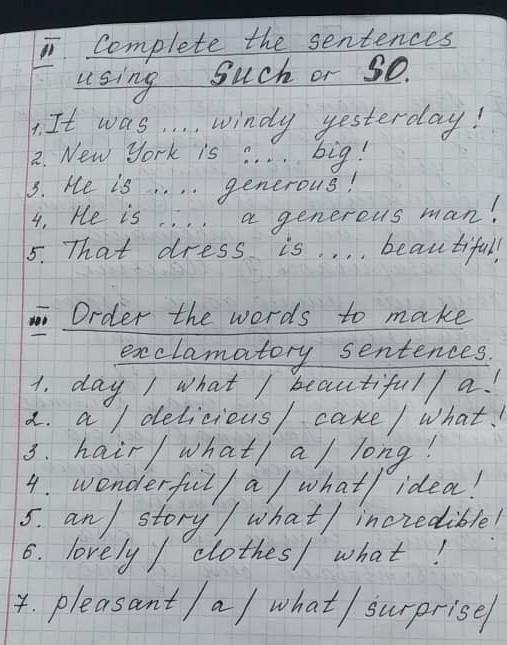 II Complete the sentences
using Such or So.
1. It was .... windy yesterday!
2. New York is .... big!
3. He is .... generous!
4. He is .... a generous man!
5. That dress is .... beautiful!
III Order the words to make
exclamatory sentences.
1. day / what / beautiful / a!
2. a / delicious / cake / what!
3. hair / what / a / long!
4. wonderful / a / what / idea!
5. an / story / what / incredible!
6. lovely / clothes / what !
7. pleasant / a / what / surprise/